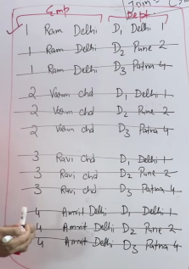 Join =
Emp Dept
1 Ram Delhi D1 Delhi 1
1 Ram Delhi D2 Pune 2
1 Ram Delhi D3 Patna 4
2 Varun chd D1 Delhi 1
2 Varun chd D2 Pune 2
2 Varun chd D3 Patna 4
3 Ravi chd D1 Delhi 1
3 Ravi chd D2 Pune 2
3 Ravi chd D3 Patna 4
4 Amrit Delhi D1 Delhi 1
4 Amrit Delhi D2 Pune 2
4 Amrit Delhi D3 Patna 4